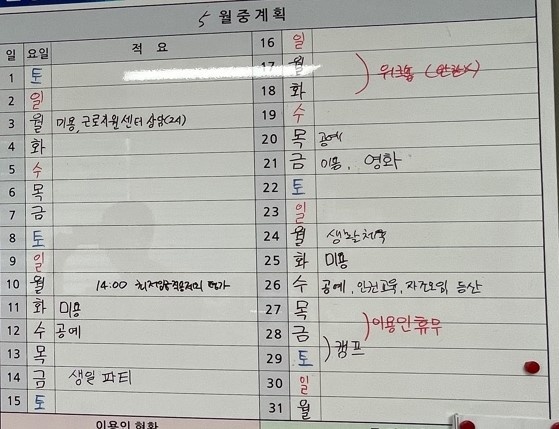 5 월 중 계 획
일 요일 적 요
1 토
2 일
3 월 미용, 근로지원센터 상담(24)
4 화
5 수
6 목
7 금
8 토
9 일
10 월 14:00
11 화 미용
12 수 공예
13 목
14 금 생일 파티
15 토
16 일
17 월
18 화
19 수
20 목 공예
21 금 미용, 영화
22 토
23 일
24 월 생활체육
25 화 미용
26 수 공예, 인권교육, 자건모임, 등산
27 목
이용인휴무
28 금
캠프
29 토
30 일
31 월
이용인 현황